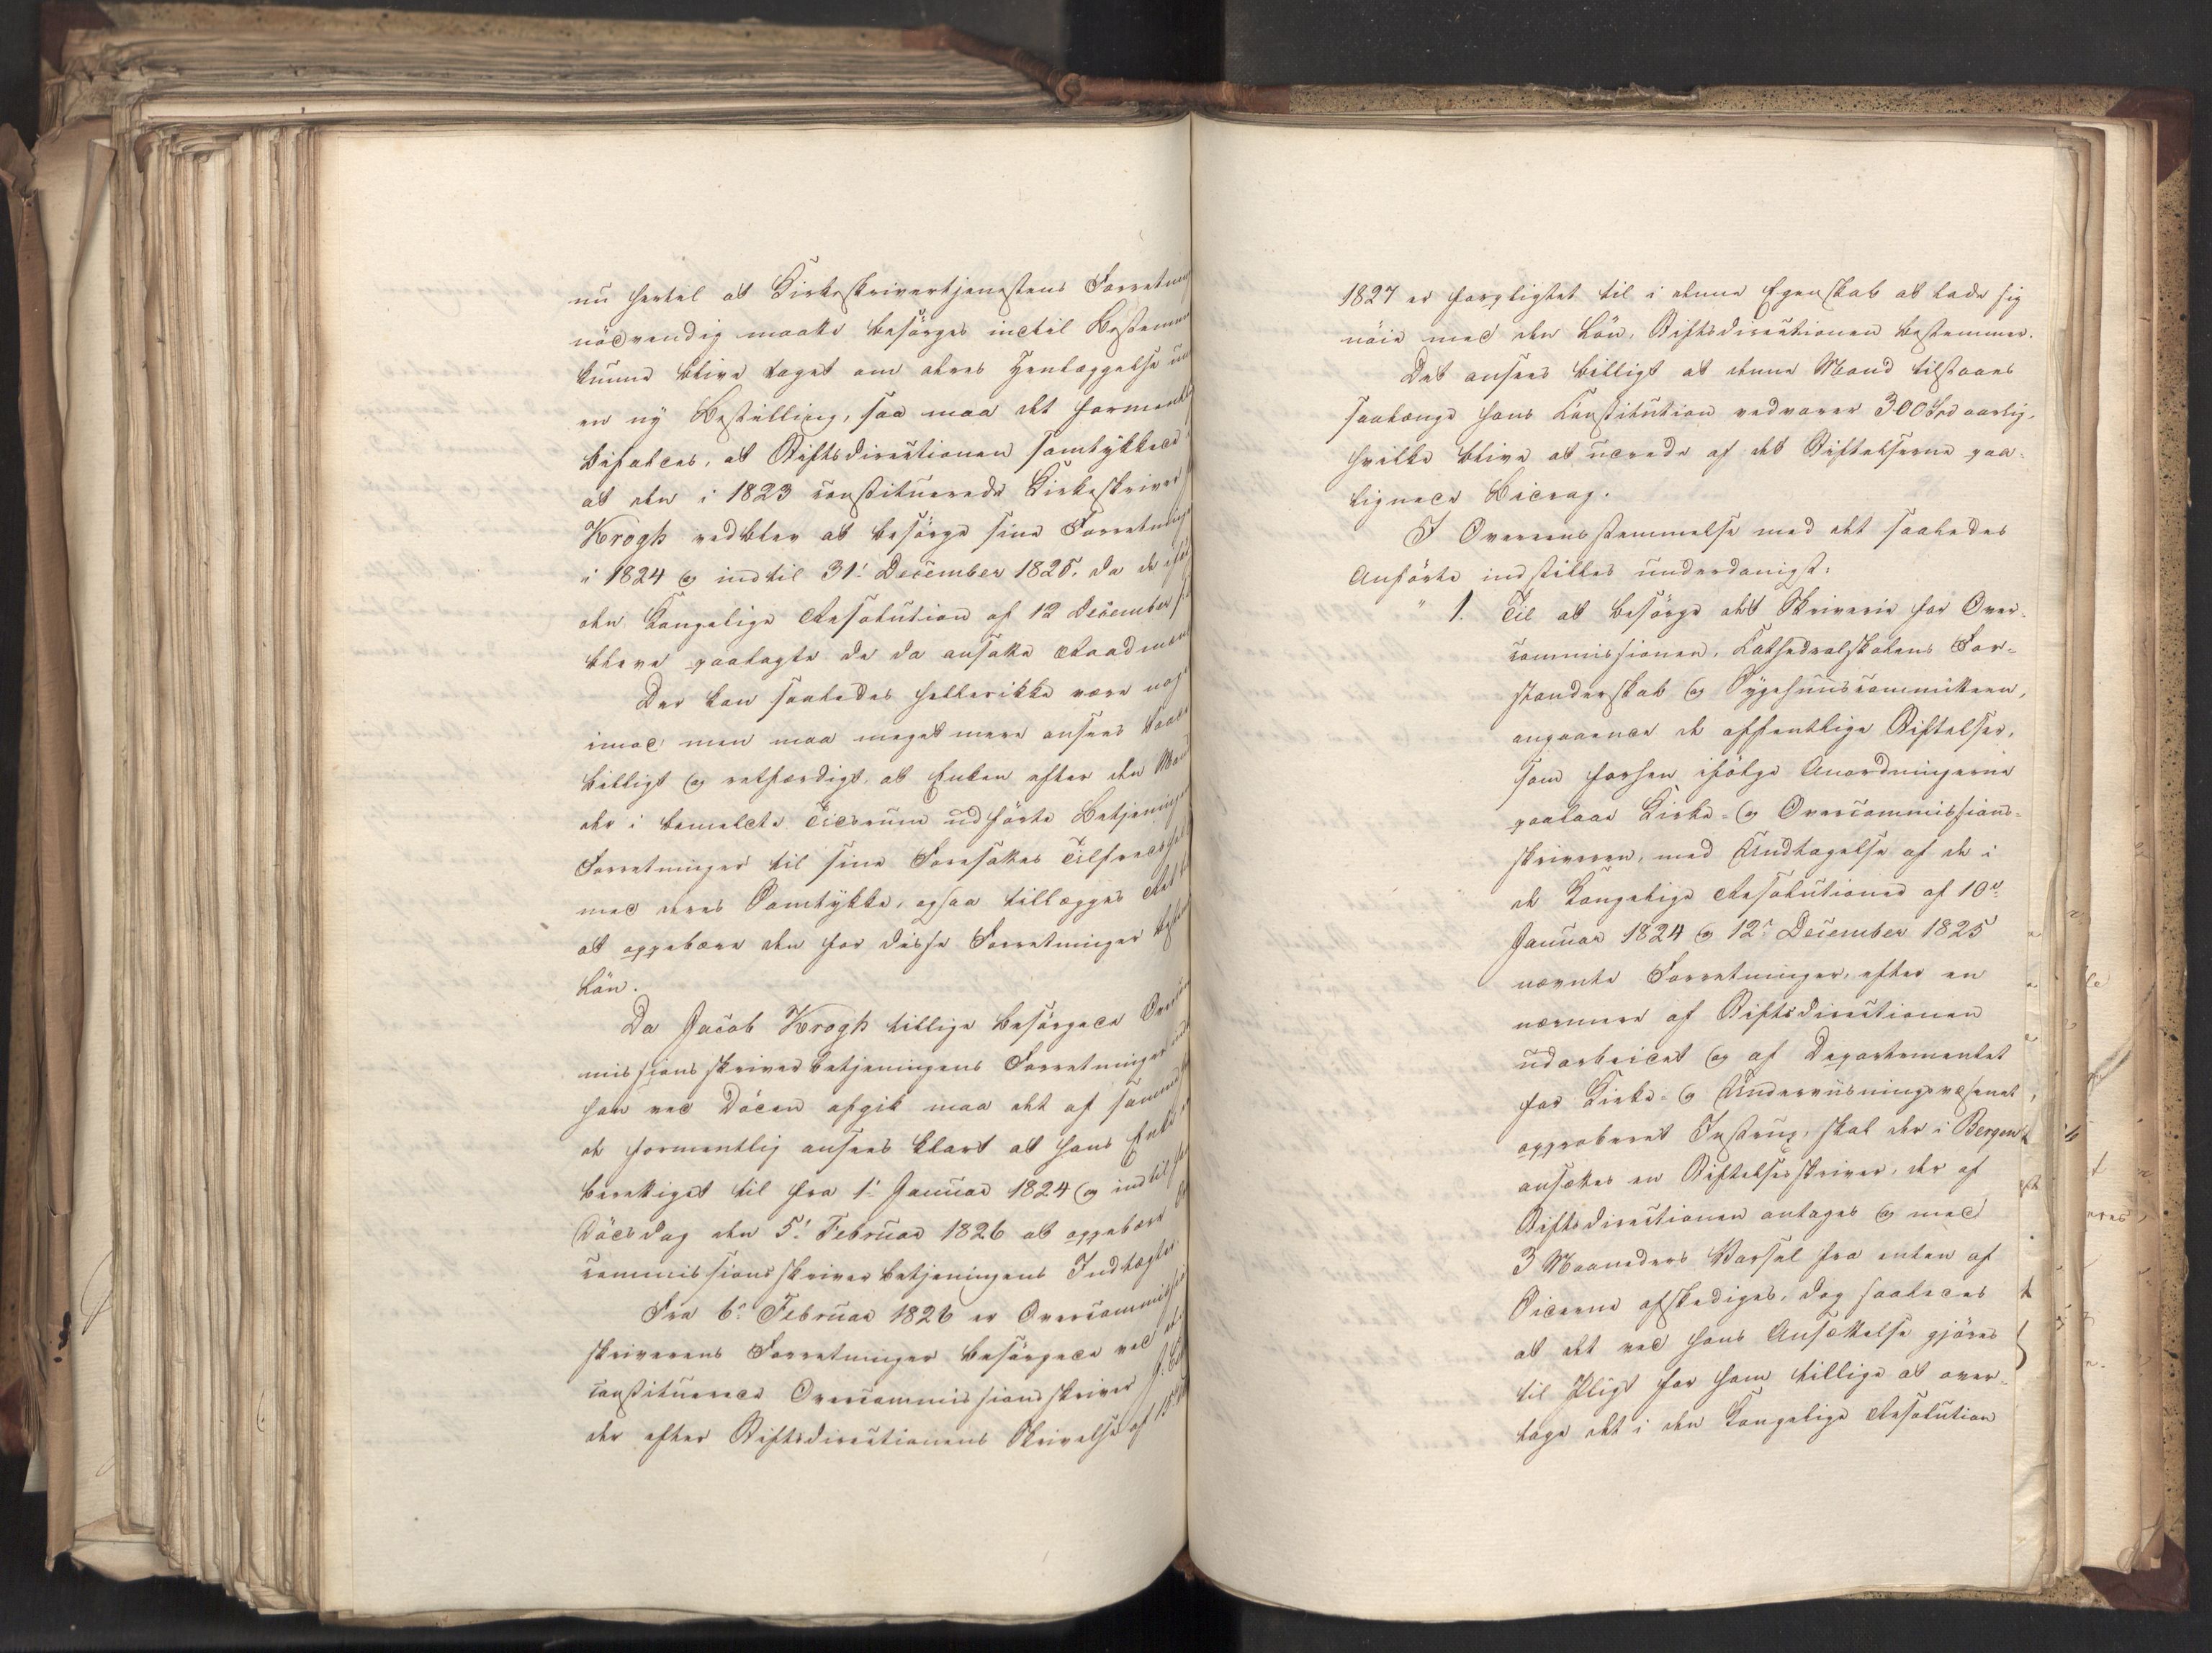 nu hertil at Kirkeskrivertjenestens Forretnin
nödvendig maatte besörges indtil Bestemm
kunne blive taget om deres Henlæggelse un
en ny Bestilling, saa maa det formentl
bifaldes, at Stiftsdirectionen samtykkede
at den i 1823 constituerede Kirkeskriver
Krogh vedblev at besörge sine Forretninge
i 1824 og indtil 31' December 1825, da de efter
den Kongelige Resolution af 12 December
bleve paalagte de da ansatte Raadmæn
Der kan saaledes hellerikke være noget
imod men maa meget mere ansees
billigt og retfærdigt, at Enken efter den Mand
der i bemeldte Tidsrum udförte Betjeninge
Forretninger til sine Foresattes Tilfreds
med deres Samtykke, ogsaa tillægges Ret
at oppebære den for disse Forretninger
Lön.
Da Jacob Krogh tillige besörgede Overcom
missionsskriver betjeningens Forretninger
han ved Döden afgik maa det af samme
de formentlig ansees klart at hans Enke
berettiget til fra 1' Januar 1824 og indtil
Dödsdag den 5' Februar 1826 at oppebære
commissionsskriver betjeningens Indtægter
Fra 6' Februar 1826 er Overcommissi
skriverens Forretninger besörgede ved
constituerede Overcommissionsskriver
der efter Stiftsdirectionens Skrivelse af 15
1827 er forpligtet til i denne Egenskab at lade sig
nöie med den Lön, Stiftsdirectionen bestemmer.
Det ansees billigt at denne Mand tilstaaes
saalænge hans Constitution vedvarer 300 Spd aarlig,
hvilke blive at udrede af det Stiftelserne paa-
lignede Bidrag.
I Overeensstemmelse med det saaledes
Anförte indstilles underdanigst:
" 1. Til at besörge det Skriverie for Over-
commissionen, Kathedralskolens For-
standerskab og Sygehuuscommitteen,
angaaende de offentlige Stiftelser,
som forhen ifölge Anordningerne
paalaae Kirke- og Overcommissions-
skriveren, med Undtagelse af de i
de Kongelige Resolutioner af 10de
Januar 1824 og 12' December 1825
nævnte Forretninger, efter en
nærmere af Stiftsdirectionen
udarbeidet og af Departementet
for Kirke- og Underviisningsvæsenet,
approberet Instrux, skal der i Bergen
ansættes en Stiftelsesskriver, der af
Stiftsdirectionen antages og med
3 Maaneders Varsel fra enten af
Siderne afskediges, dog saaledes
at det ved hans Ansættelse gjöres
til Pligt for ham tillige at over-
tage det i den Kongelige Resolution